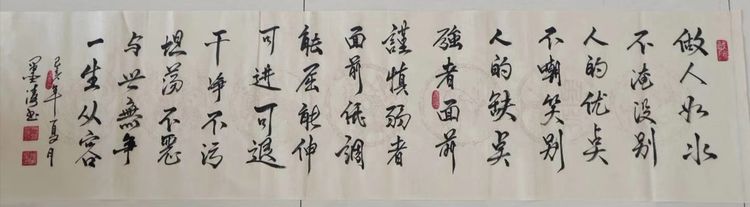 做人如水
不淹没别
人的优点
不嘲笑别
人的缺点
强者面前
謹慎弱者
面前低調
能屈能伸
可进可退
干净不污
坦荡不恶
与世無争
一生从容
己亥年夏月
墨涛书